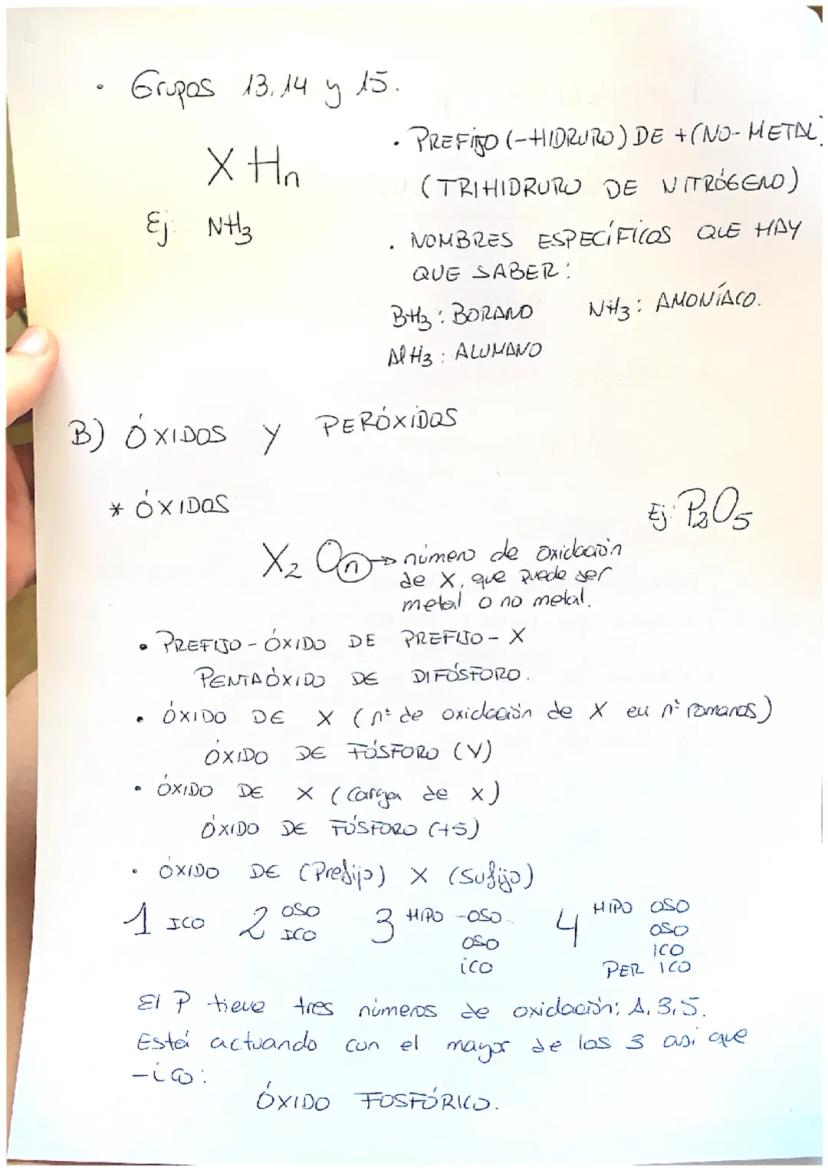 · Grupos 13, 14 y 15.
XHn
Ej NH3
· PREFIJO (-HIDRURO) DE + (NO-METAL)
(TRIHIDRURO DE NITRÓGENO)
· NOMBRES ESPECÍFICOS QUE HAY
QUE SABER:
BH3: BORANO NH3: AMONÍACO.
AlH3: ALUMANO
B) ÓXIDOS Y PERÓXIDOS
* ÓXIDOS
Ej: P2O5
X2 On → número de oxidación
de X, que puede ser
metal o no metal.
• PREFIJO-ÓXIDO DE PREFIJO-X
PENTAÓXIDO DE DIFÓSFORO.
• ÓXIDO DE X (nº de oxidación de X en nº romanos)
ÓXIDO DE FÓSFORO (V)
• ÓXIDO DE X (Carga de X)
ÓXIDO DE FÓSFORO (+5)
• ÓXIDO DE (Prefijo) X (Sufijo)
1 ICO 2 OSO 3 HIPO -OSO 4 HIPO OSO
ICO OSO OSO
ICO ICO
PER ICO
El P tiene tres números de oxidación: 1, 3, 5.
Está actuando con el mayor de los 3 así que
-ico:
ÓXIDO FOSFÓRICO.